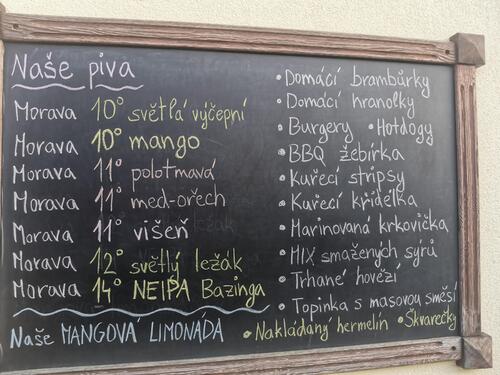 Naše piva
Morava 10° světlá výčepní
Morava 10° mango
Morava 11° polotmavá
Morava 11° med-ořech
Morava 11° višeň
Morava 12° světlý ležák
Morava 14° NEIPA Bazinga
Naše MANGOVÁ LIMONÁDA
• Domácí brambůrky
• Domácí hranolky
• Burgery • Hotdogy
• BBQ žebírka
• Kuřecí stripsy
• Kuřecí křidélka
• Marinovaná krkovička
• MIX smažených sýrů
• Trhané hovězí
• Topinka s masovou směsí
• Nakládaný hermelín • Škvarečky